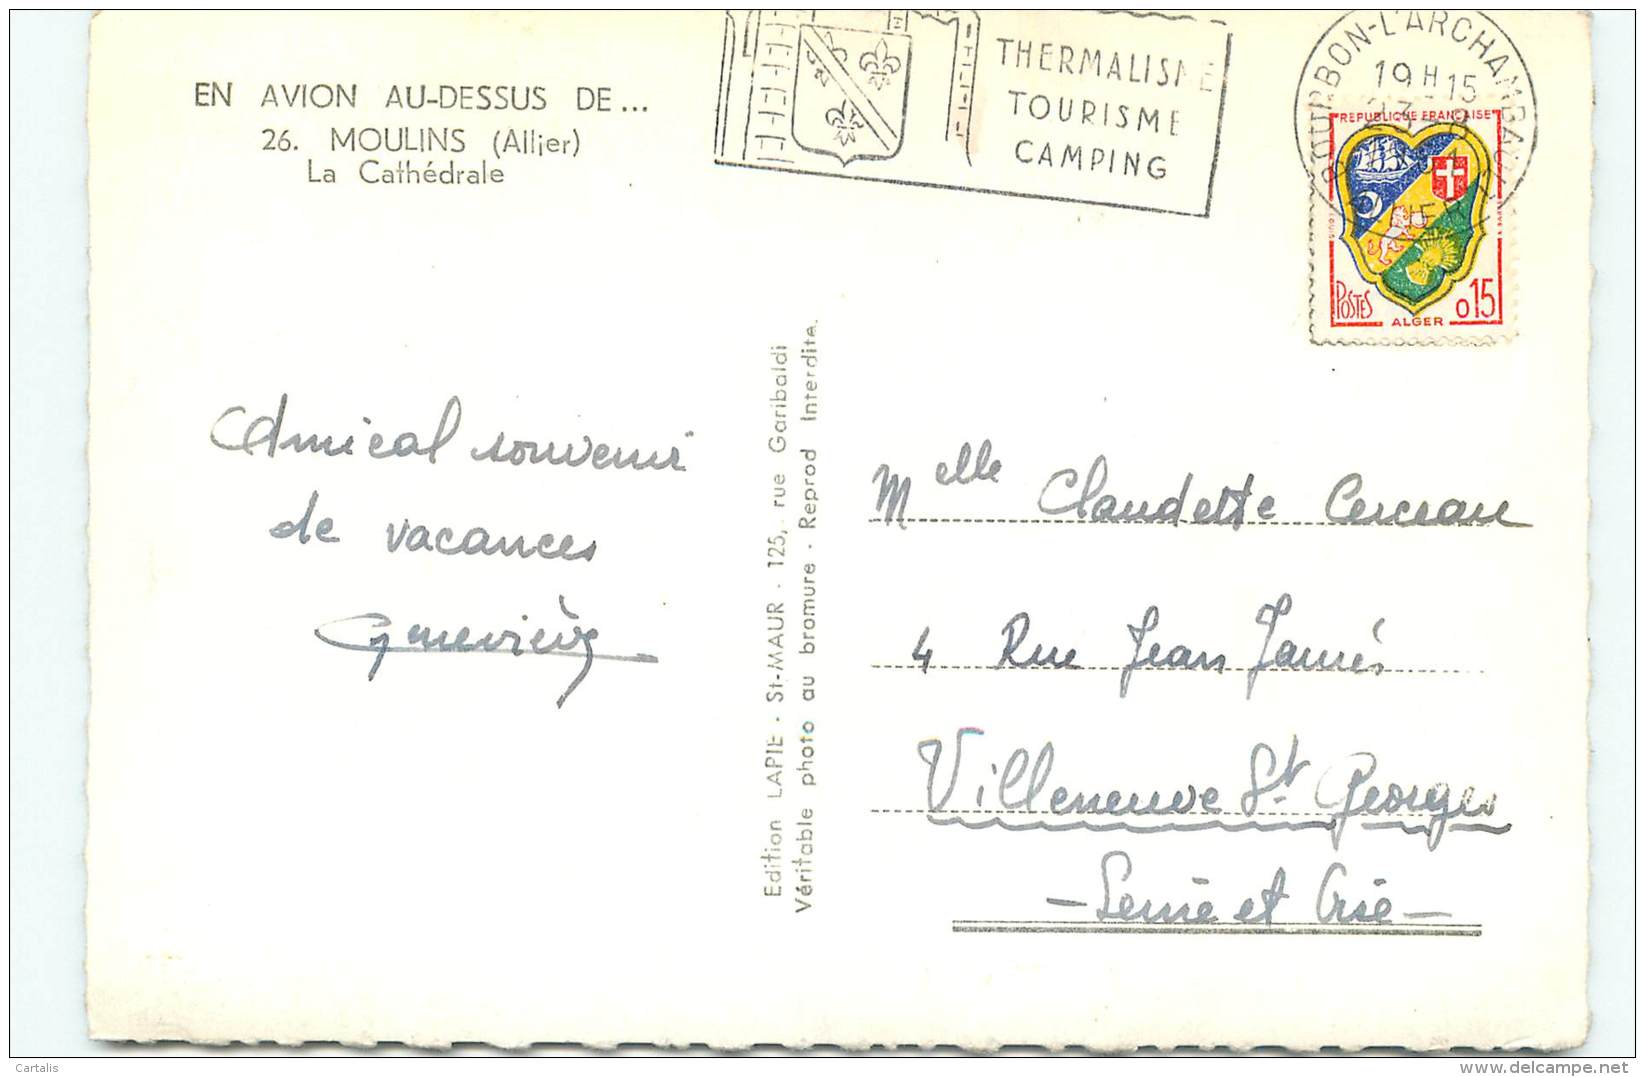 EN AVION AU-DESSUS DE...
26. MOULINS (Allier)
La Cathédrale
THERMALISME
TOURISME
CAMPING
BOURBON-L'ARCHAMBAULT
19 H 15
ALLIER
REPUBLIQUE FRANÇAISE
POSTES
0,15
ALGER
Amical souvenir
de vacances
Geneviève
Edition LAPIE - St-MAUR - 125, rue Garibaldi
Véritable photo au bromure - Reprod Interdite.
Melle Claudette Cerceau
4 Rue Jean Jaurés
Villeneuve St Georges
- Seine et Oise -
Cartalis
www.delcampe.net